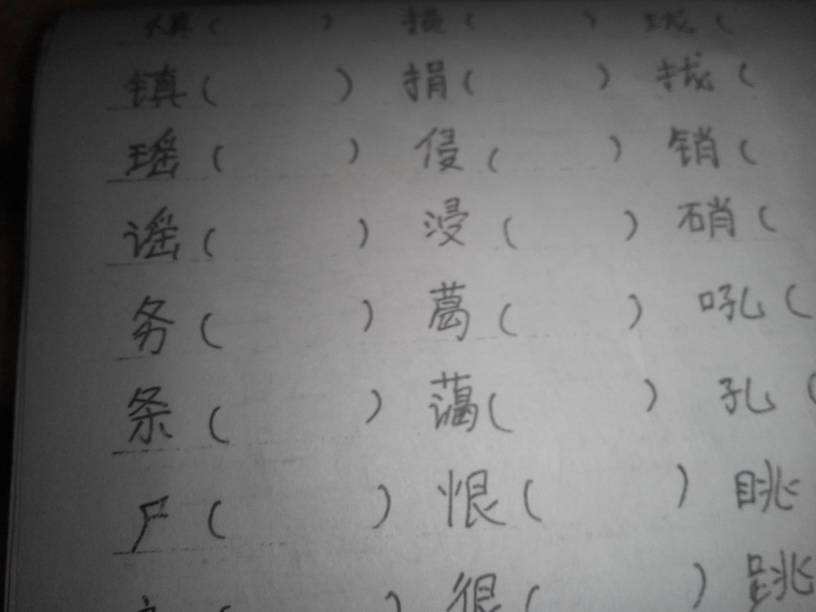 慎（　　） 损（　　）
镇（　　） 捐（　　） 找（
瑶（　　） 侵（　　） 销（
谣（　　） 浸（　　） 硝（
务（　　） 葛（　　） 吼（
条（　　） 蔼（　　） 孔（
尸（　　） 恨（　　） 眺
（　　） 很（　　） 跳